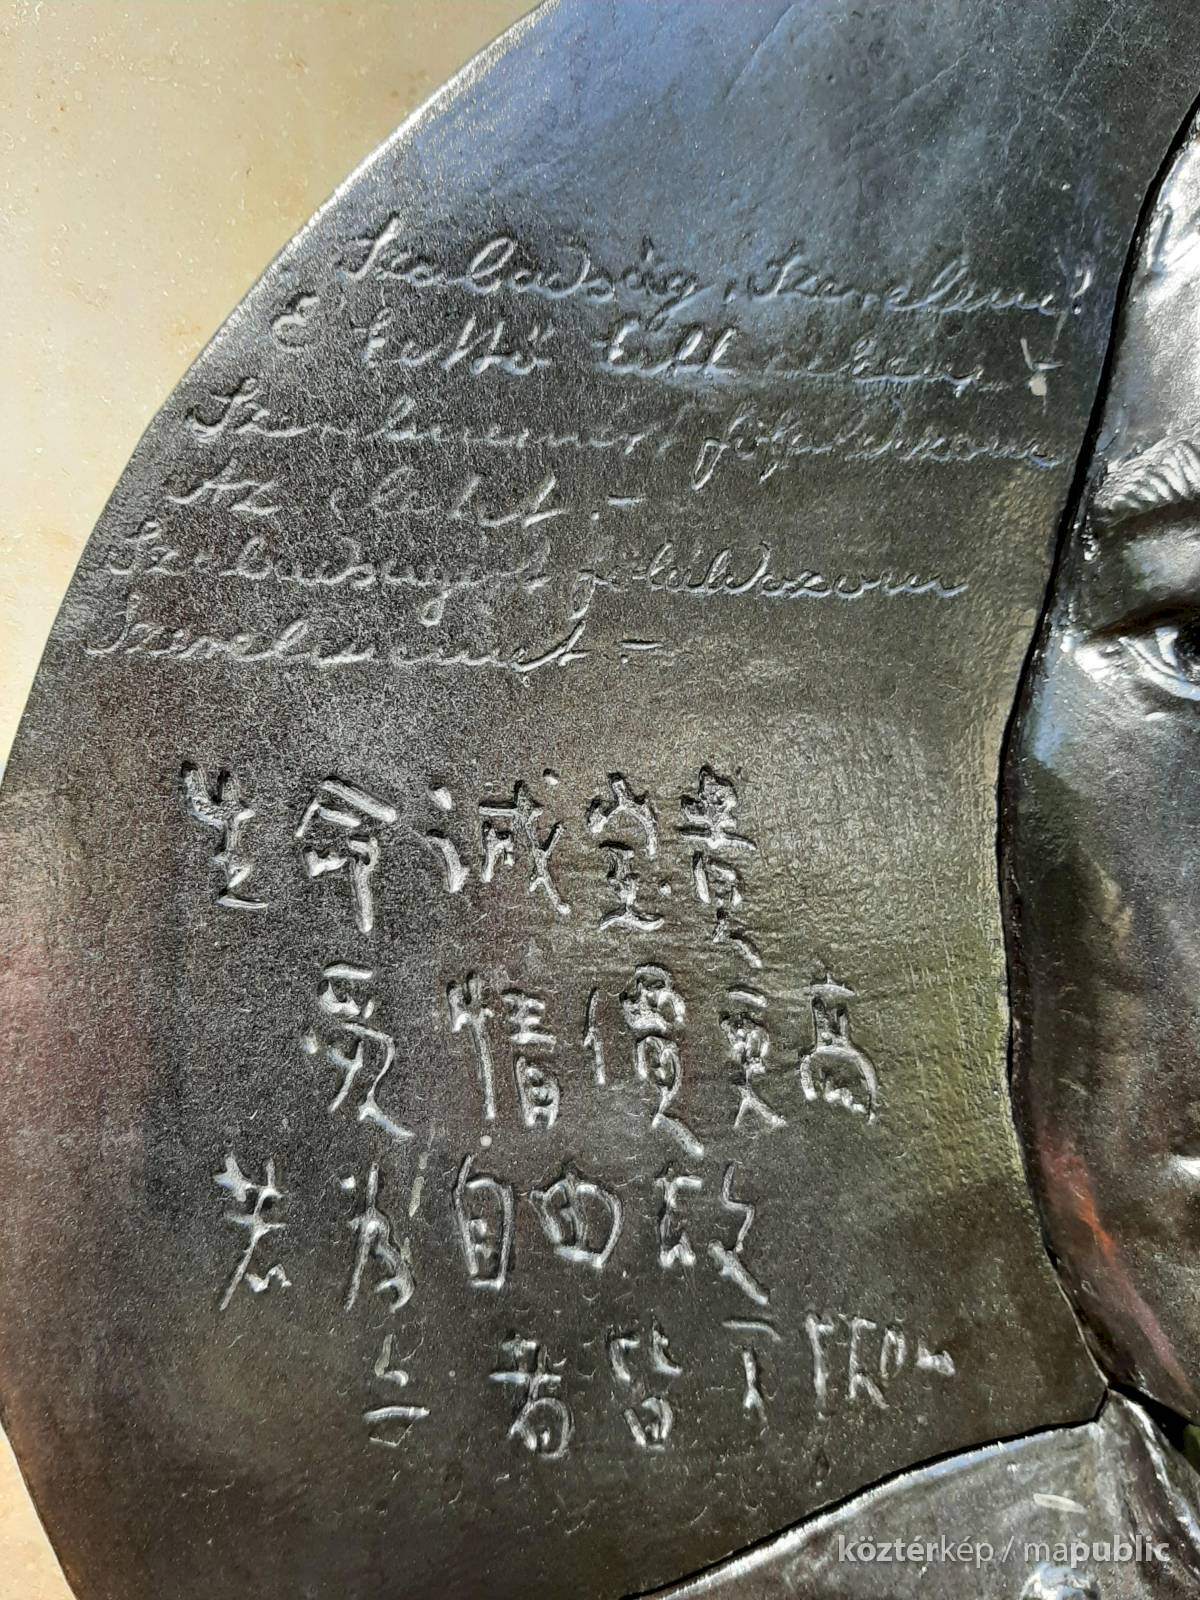 Szabadság, szerelem!
E kettő kell nekem.
Szerelmemért föláldozom
Az életet.-
Szabadságért föláldozom
Szerelmemet.-
生命誠至貴
愛情價更高
若為自由故
二者皆可拋
köztérkép / mapublic